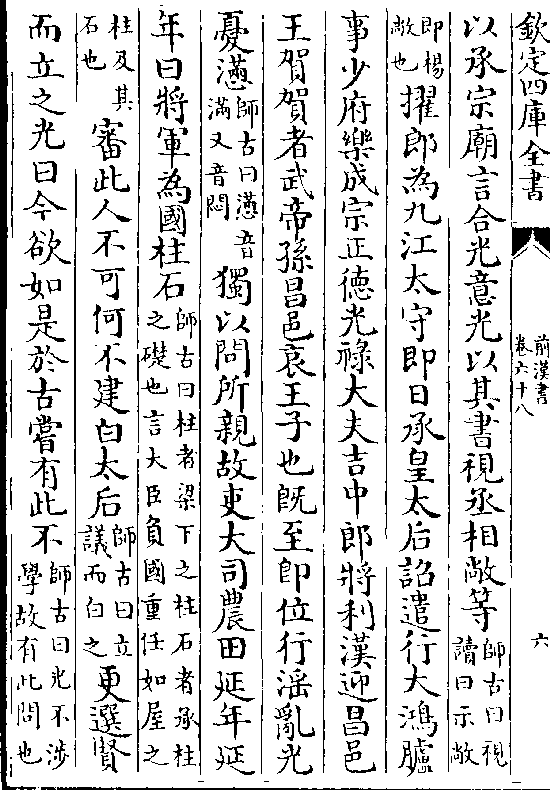 欽定四庫全書
前漢書
卷六十八
六
以承宗廟言合光意光以其書視丞相敞等師古曰視讀曰示敞
即楊敞也擢郎為九江太守即日承皇太后詔遣行大鴻臚
事少府樂成宗正德光祿大夫吉中郎將利漢迎昌邑
王賀賀者武帝孫昌邑哀王子也既至即位行淫亂光
憂懣師古曰懣音滿又音悶獨以問所親故吏大司農田延年延
年曰將軍為國柱石師古曰柱者梁下之柱石者承柱之礎也言大臣負國重任如屋之
柱及其石也審此人不可何不建白太后師古曰立議而白之更選賢
而立之光曰今欲如是於古嘗有此不師古曰光不涉學故有此問也